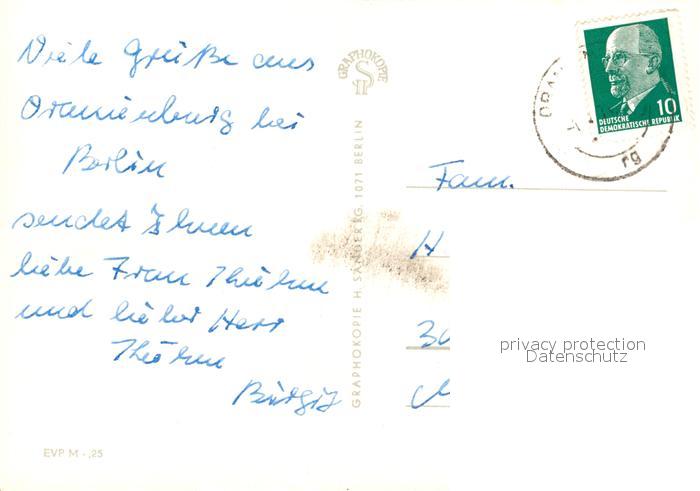 Viele Grüße aus
Oranienburg bei
Berlin
sendet Ihnen
liebe Frau
und lieber Herr
Birgit
EVP M -,25
GRAPHOKOPIE
GRAPHOKOPIE H. SANDER KG, 1071 BERLIN
DEUTSCHE
DEMOKRATISCHE REPUBLIK
10
ORAN
rg
Fam.
H
privacy protection
Datenschutz